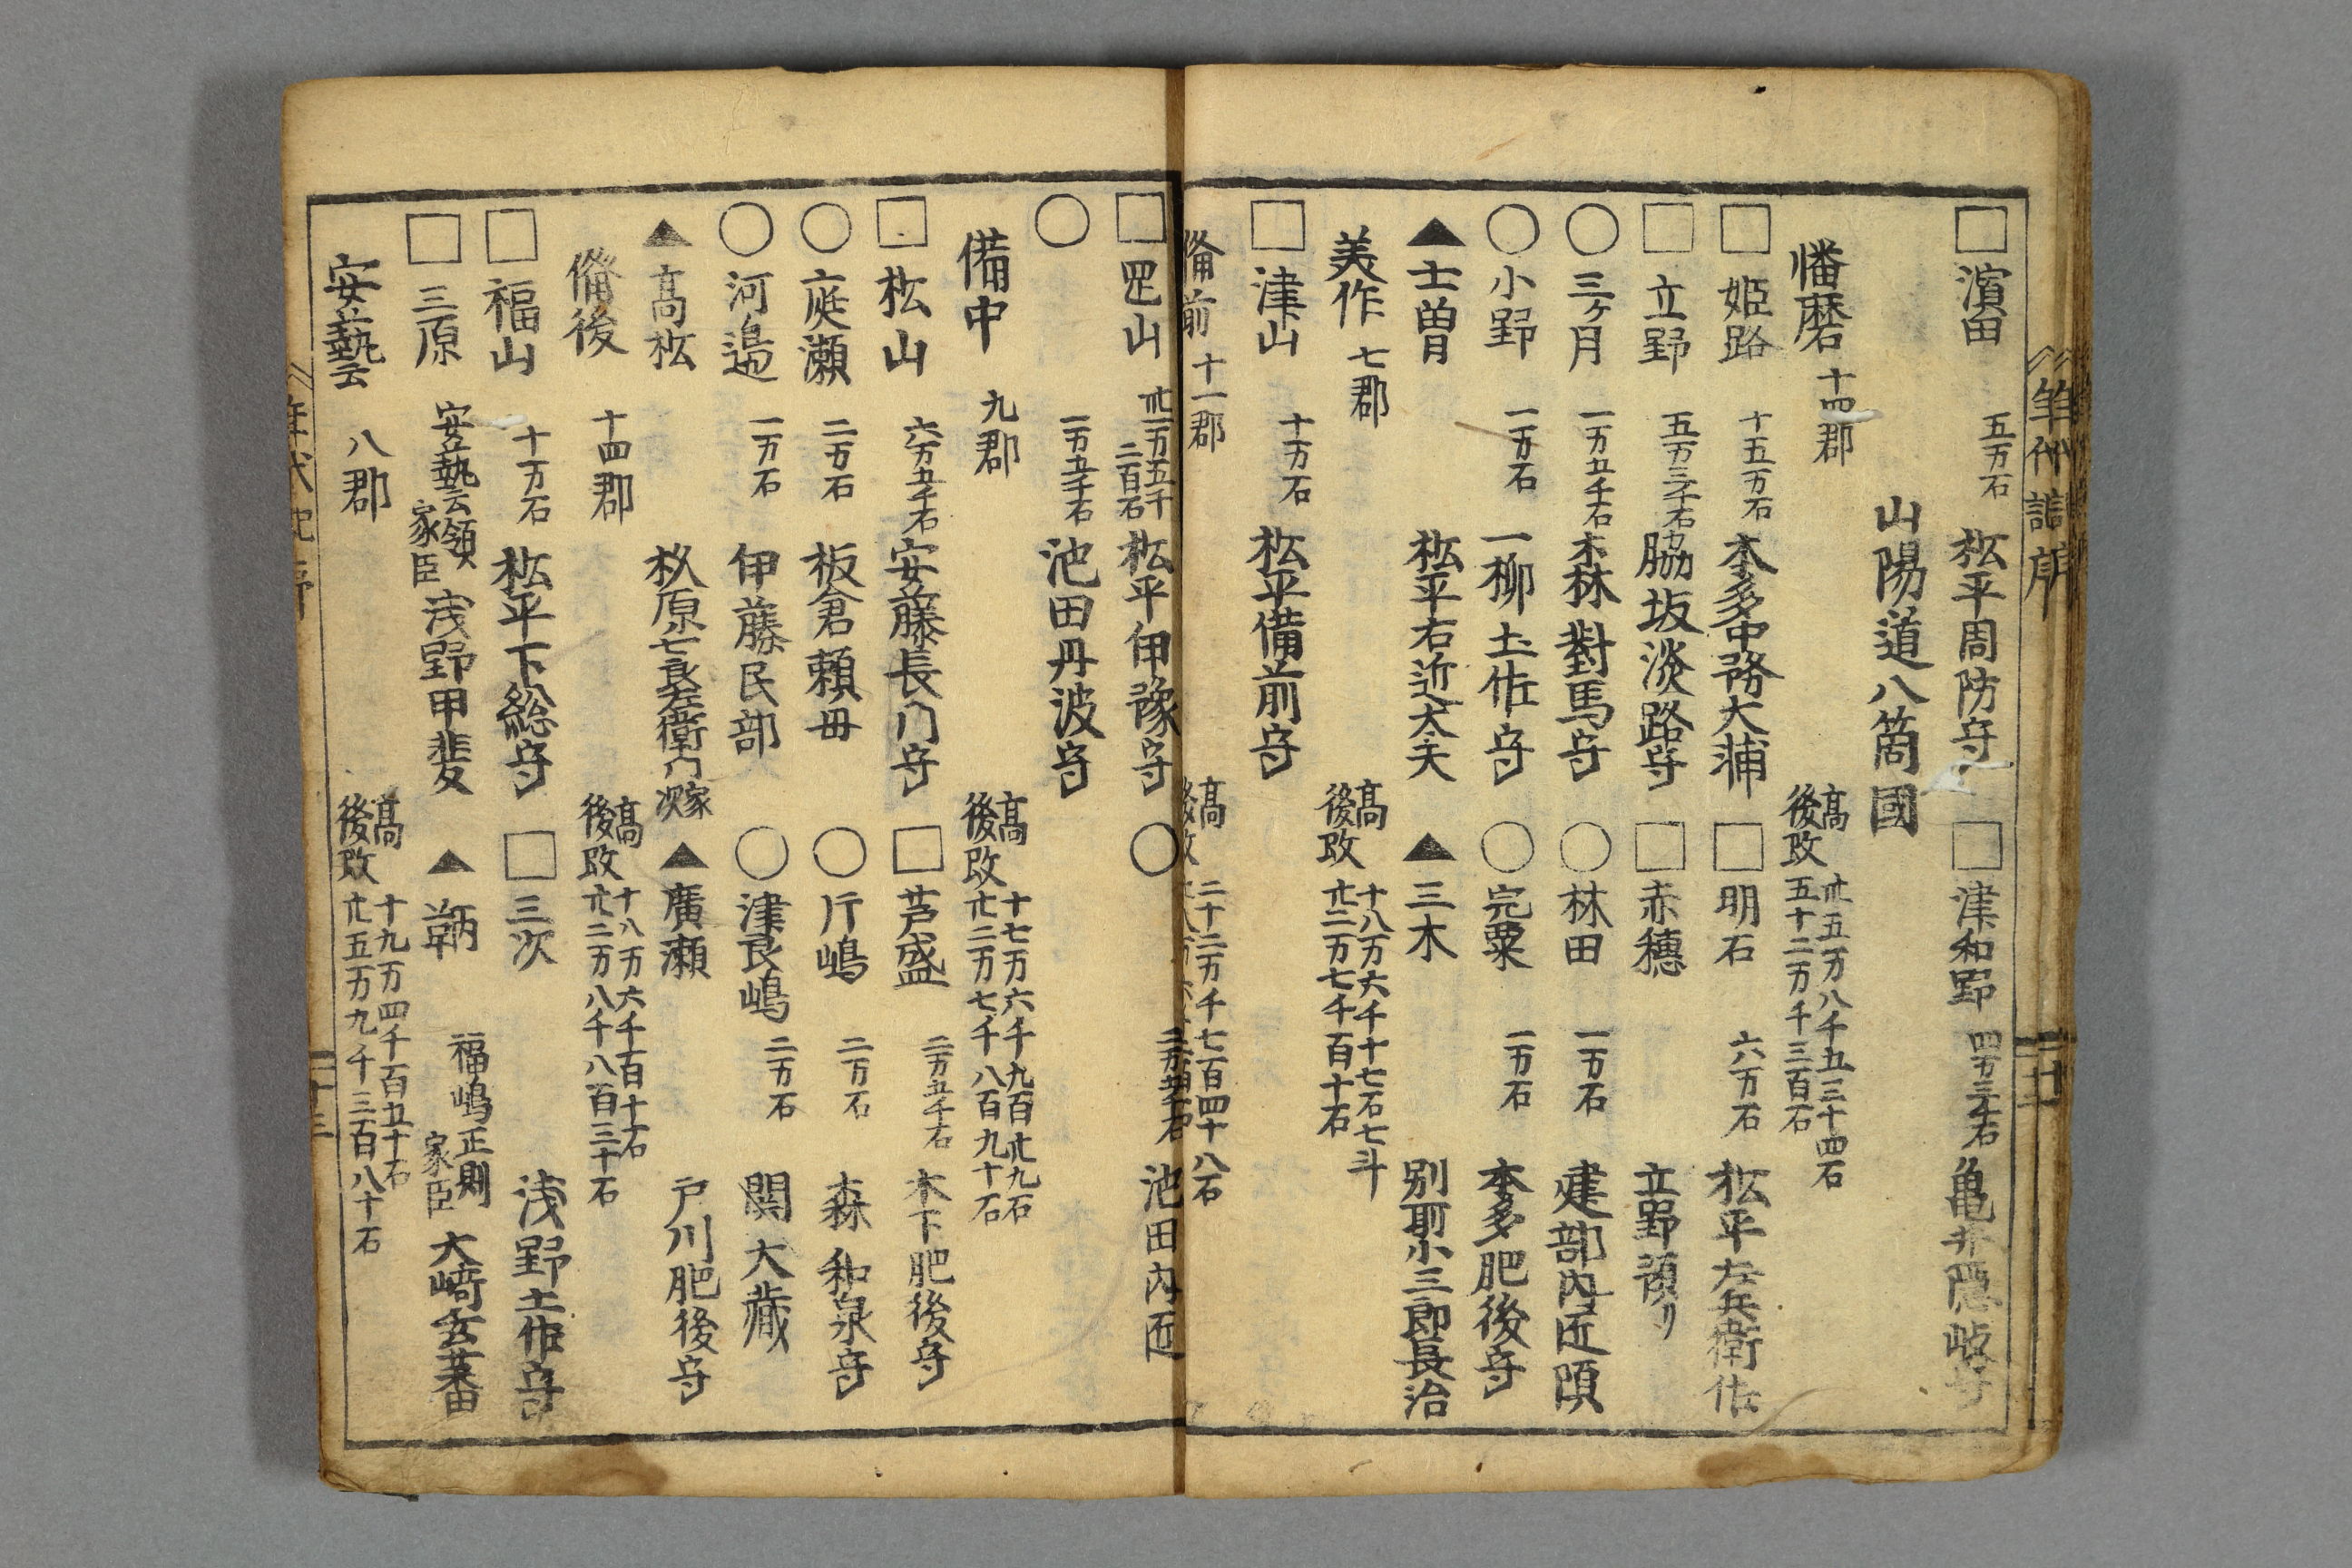 □濱田 五万石 松平周防守 □津和野 四万三千石 亀井隠岐守
山陽道八箇國
幡磨 十四郡 高 卅五万八千五三十四石
後改 五十二万千三百石
□姫路 十五万石 本多中務大浦 □明石 六万石 松平左兵衛佐
□立野 五万三千石 脇坂淡路守 □赤穗 立野預リ
○三ケ月 一万五千石 森對馬守 ○林田 一万石 建部内匠頭
○小野 一万石 一柳土佐守 ○完粟 一万石 本多肥後守
▲士曽 松平右近太夫 ▲三木 別所小三郎長治
美作 七郡 高 十八万六千十七石七斗
後改 廿二万七千百十石
□津山 十万石 松平備前守
備前 十一郡 高 二十二万千七百四十八石
後改
□罡山 卅一万五千二百石 松平伊豫守 ○ 池田内匠
○ 一万五千石 池田丹波守
備中 九郡 高 十七万六千九百廿九石
後改 廿二万七千八百九十石
□松山 六万五千石 安藤長门守 □芦盛 二万五千石 木下肥後守
○庭瀬 二万石 板倉頼毋 ○斤嶋 二万石 森和泉守
○河邉 一万石 伊藤民部 ○津良嶋 二万石 関大藏
▲高松 杦原七良左衛门家次 ▲廣瀬 戸川肥後守
備後 十四郡 高 十八万六千百十石
後改 廿二万八千八百三十石
□福山 十万石 松平下総守 □三次 浅野土佐守
□三原 安藝領家臣 浅野甲斐 ▲鞆 福嶋正則家臣 大﨑玄蕃
安藝 八郡 高 十九万四千百五十石
後改 廿五万九千三百八十石